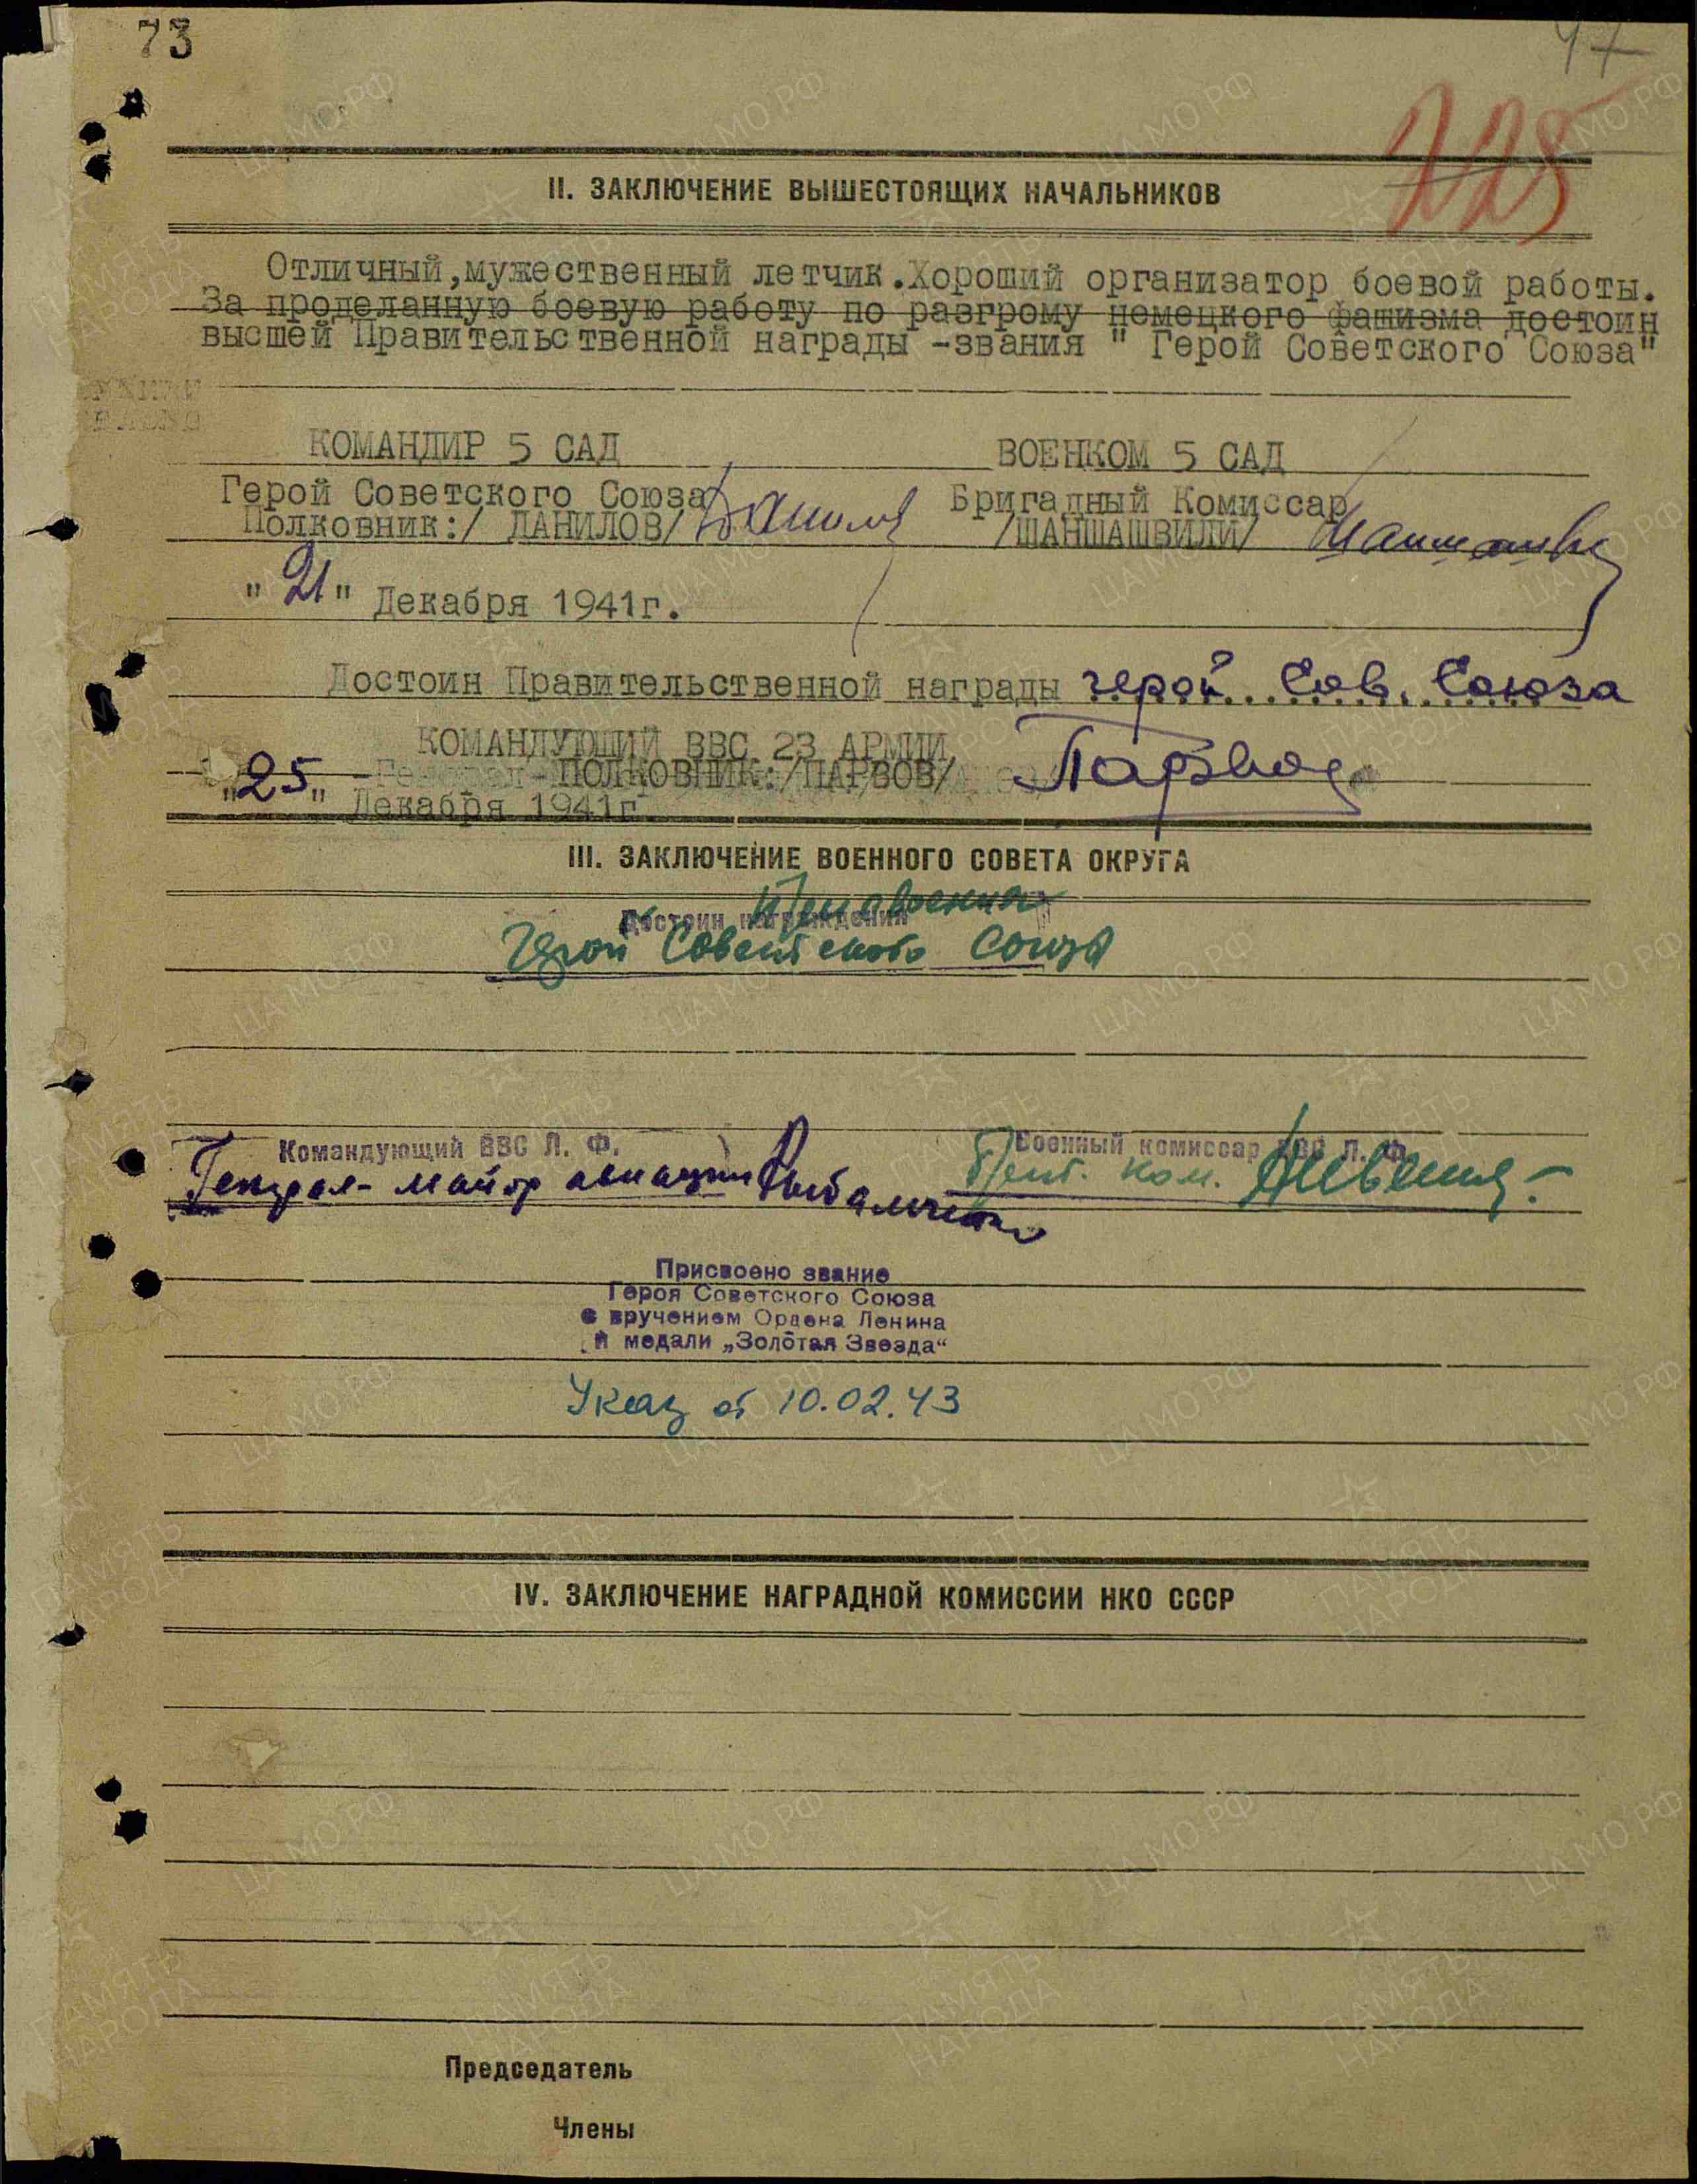 73
47
225
II. ЗАКЛЮЧЕНИЕ ВЫШЕСТОЯЩИХ НАЧАЛЬНИКОВ
Отличный,мужественный летчик.Хороший организатор боевой работы.
За проделанную боевую работу по разгрому немецкого фашизма достоин
высшей Правительственной награды -звания " Герой Советского Союза"
КОМАНДИР 5 САД ВОЕНКОМ 5 САД
Герой Советского Союза Бригадный Комиссар
Полковник:/ ДАНИЛОВ/ /ШАНШАШВИЛИ/
"21" Декабря 1941г.
Достоин Правительственной награды герой Сов. Союза
КОМАНДУЮЩИЙ ВВС 23 АРМИИ
ПОЛКОВНИК:/ПАРВОВ/
"25" Декабря 1941г
III. ЗАКЛЮЧЕНИЕ ВОЕННОГО СОВЕТА ОКРУГА
Достоин награждения Присвоения
Герой Советского Союза
Командующий ВВС Л. Ф. Военный комиссар ВВС Л. Ф.
Генерал-майор авиации Рыбальченко ком.
Присвоено звание
Героя Советского Союза
с вручением Ордена Ленина
и медали „Золотая Звезда“
Указ от 10.02.43
IV. ЗАКЛЮЧЕНИЕ НАГРАДНОЙ КОМИССИИ НКО СССР
Председатель
Члены
ПАМЯТЬ НАРОДА
ЦАМО.РФ